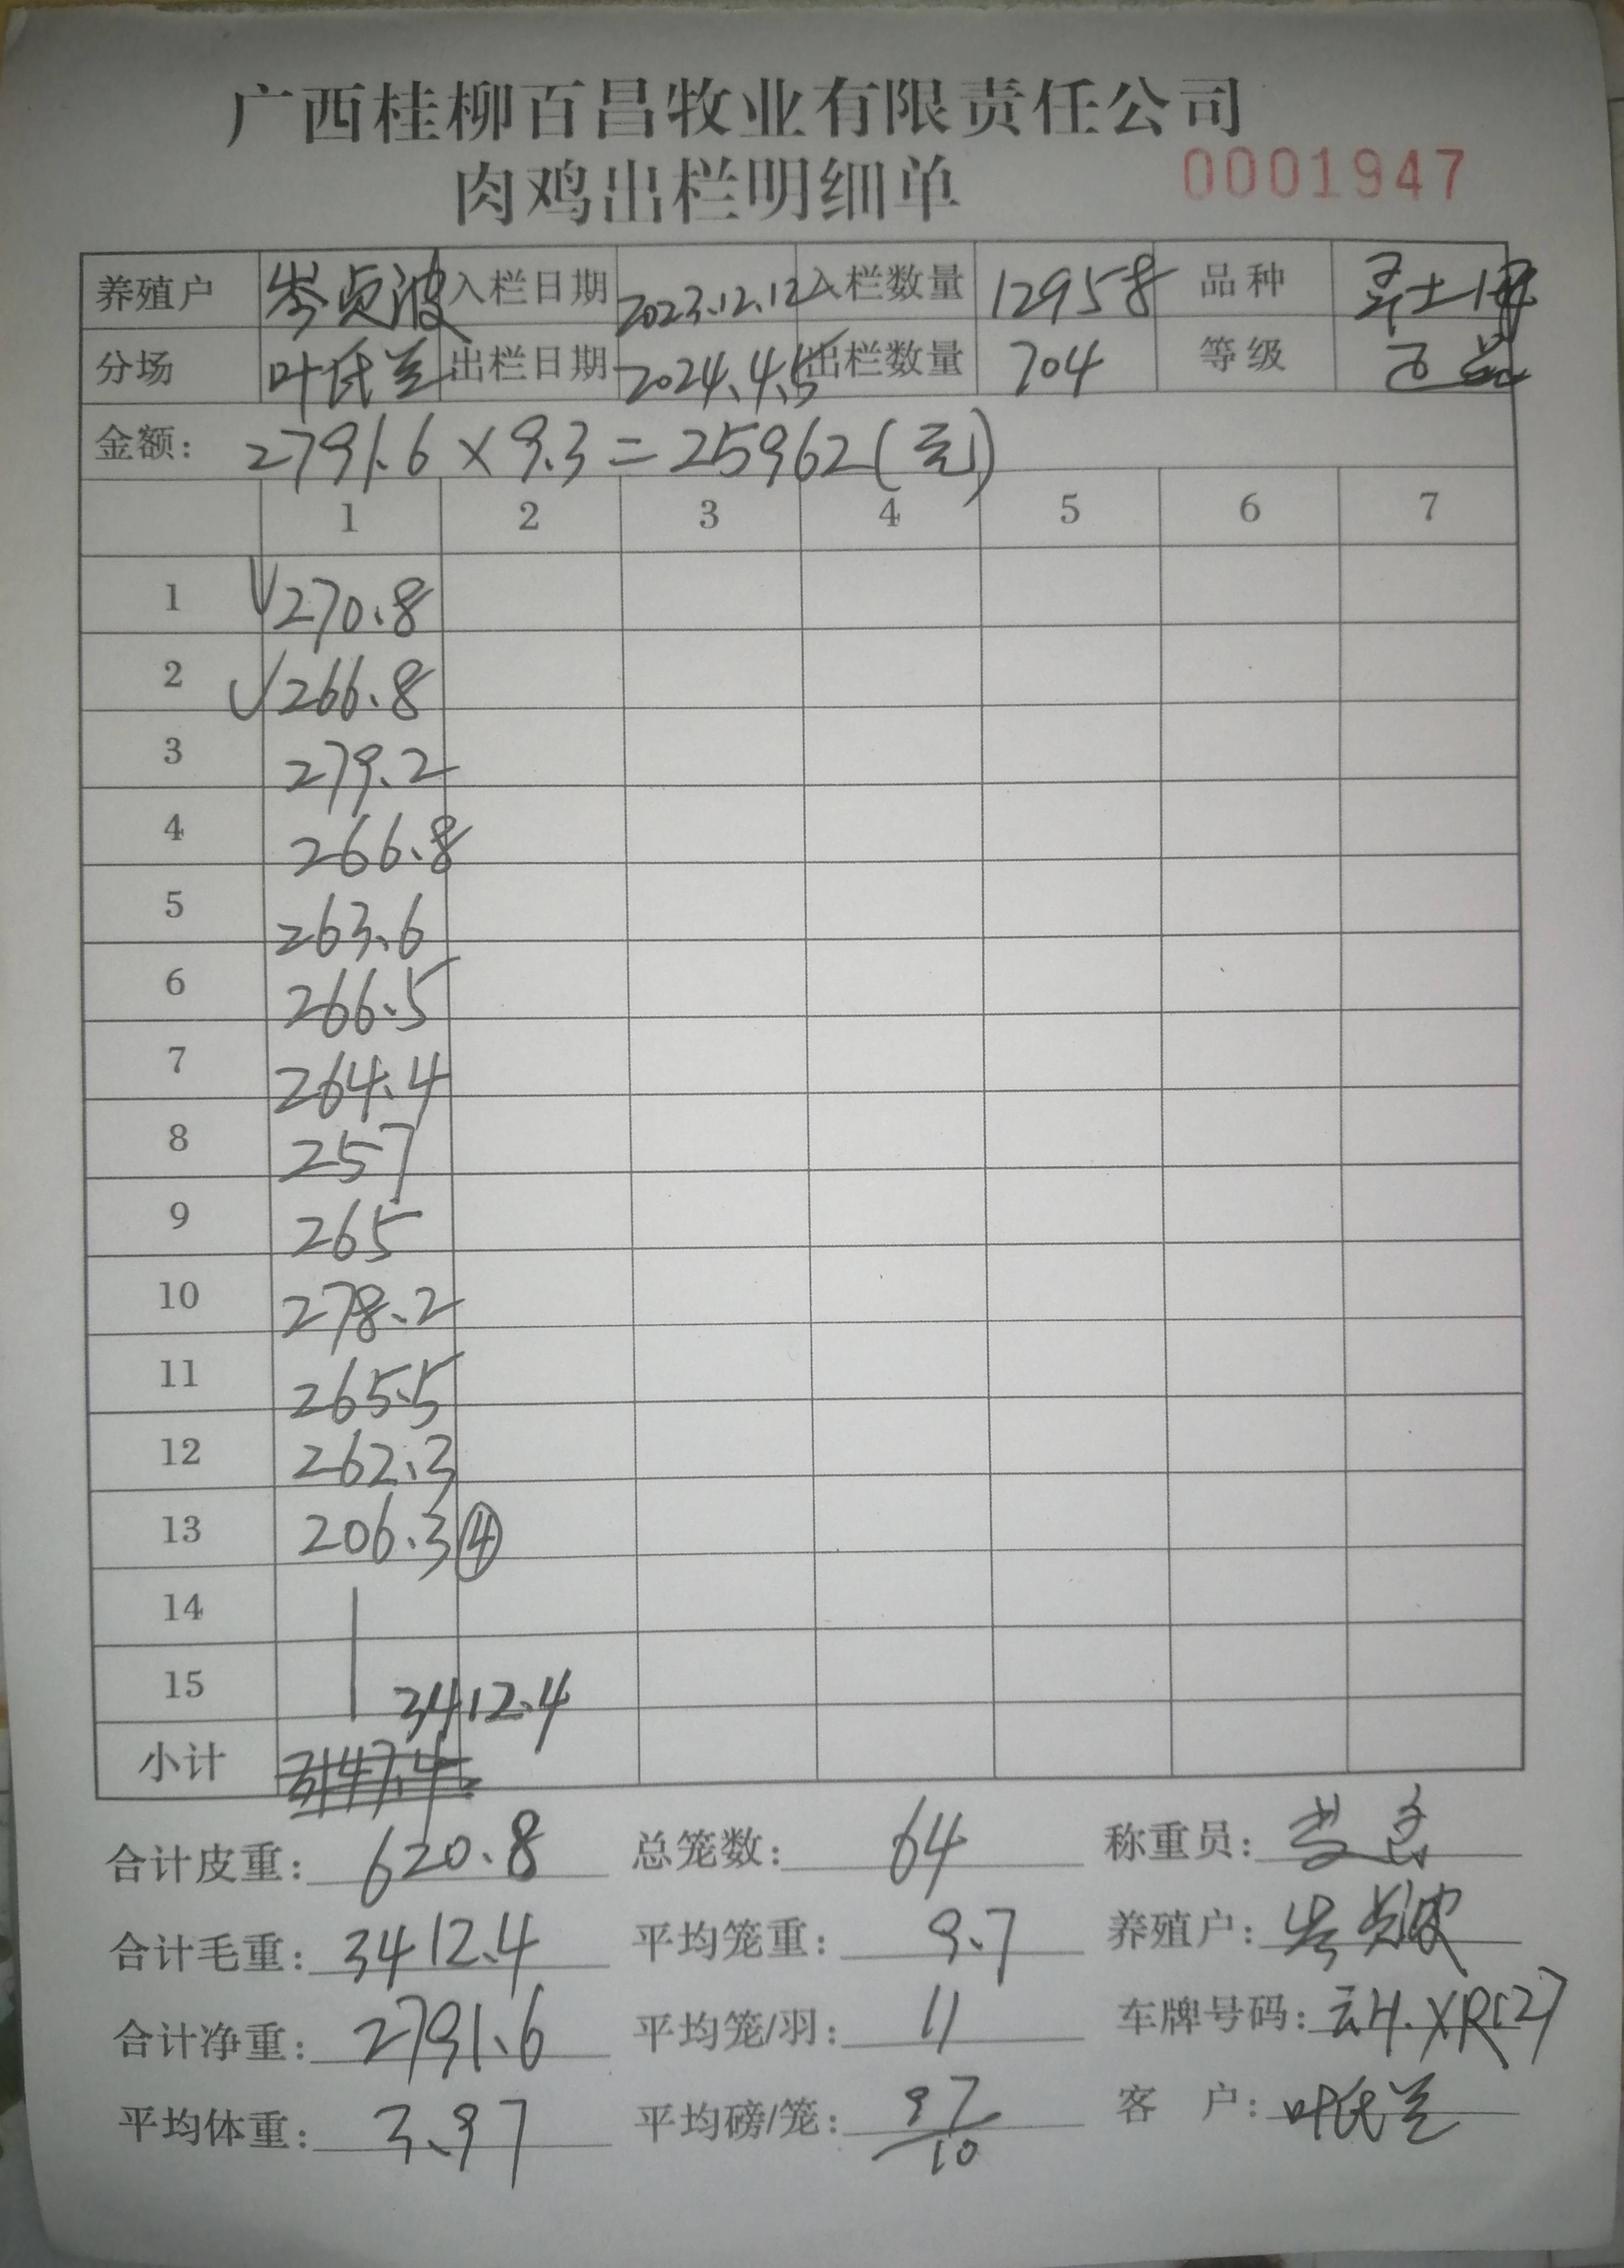 广西桂柳百昌牧业有限责任公司
肉鸡出栏明细单 0001947
养殖户 岑贞波 入栏日期 2023.12.12 入栏数量 12958 品种
分场 叶氏兰 出栏日期 2024.4.5 出栏数量 704 等级
金额: 2791.6 × 9.3 = 25962(元)
1 2 3 4 5 6 7
1 √270.8
2 √266.8
3 279.2
4 266.8
5 263.6
6 266.5
7 264.4
8 257
9 265
10 278.2
11 265.5
12 262.3
13 206.3④
14
15 3412.4
小计 3147.4
合计皮重: 620.8 总笼数: 64 称重员:
合计毛重: 3412.4 平均笼重: 9.7 养殖户: 岑贞波
合计净重: 2791.6 平均笼/羽: 11 车牌号码: 云H.XR127
平均体重: 3.97 平均磅/笼: 97/10 客 户: 叶氏兰